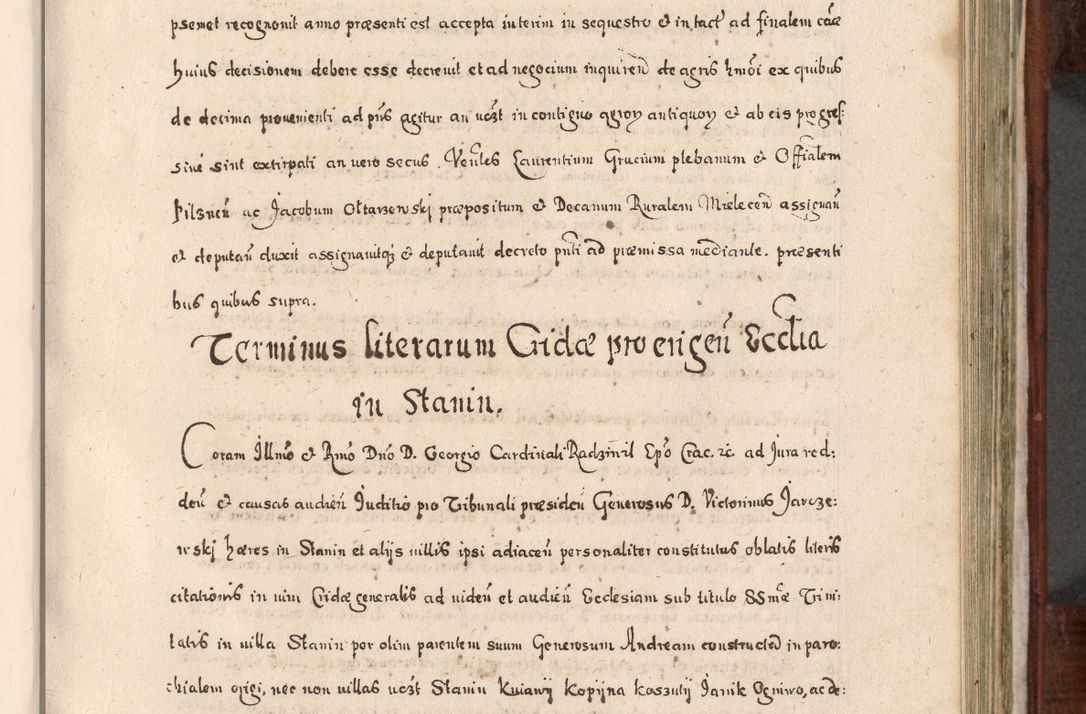 psemet recognouit anno præsenti est accepta interim in sequestro et in tact ad finalem cãæ
huius decisionem debere esse decreuit et ad negocium inquireñ de agris hmõi ex quibus
de decima prouenienti ad pñs agitur an uczt in contiguo agroȝ antiquoȝ et ab eis progres-
siue sint extirpati an uero secus. Veñles Laurentium Grucium plebanum et Officialem
Pilsneñ ac Jacobum Ołtarzewski præpositum et Decanum Ruralem Mieleceñ assignañ
et deputañ duxit assignauitqȝ et deputauit decreto pñti ad præmissa mediante. præsenti
bus quibus supra.
Terminus literarum Cridæ pro erigeñ Ecclia
in Stanin.
Coram Illmo et Rmo Dno D. Georgio Cardinali Radziwil Epo Crac. zc. ad Jura red:
deñ et causas audieñ Juditio pro Tribunali præsideñ Generosus D. Victorinus Jarcze:
wski hæres in Stanin et alijs uillis ipsi adiaceñ personaliter constitutus oblatis literis
citationis in uim Cridæ generalis ad uideñ et audieñ Ecclesiam sub titulo SSmæ Trini:
tatis in uilla Stanin per olim parentem suum Generosum Andream constructã in paro:
chialem erigi, nec non uillas uczt Stanin Kuiawij Kopijna Koszutij Janik Ogniwo, ac de: